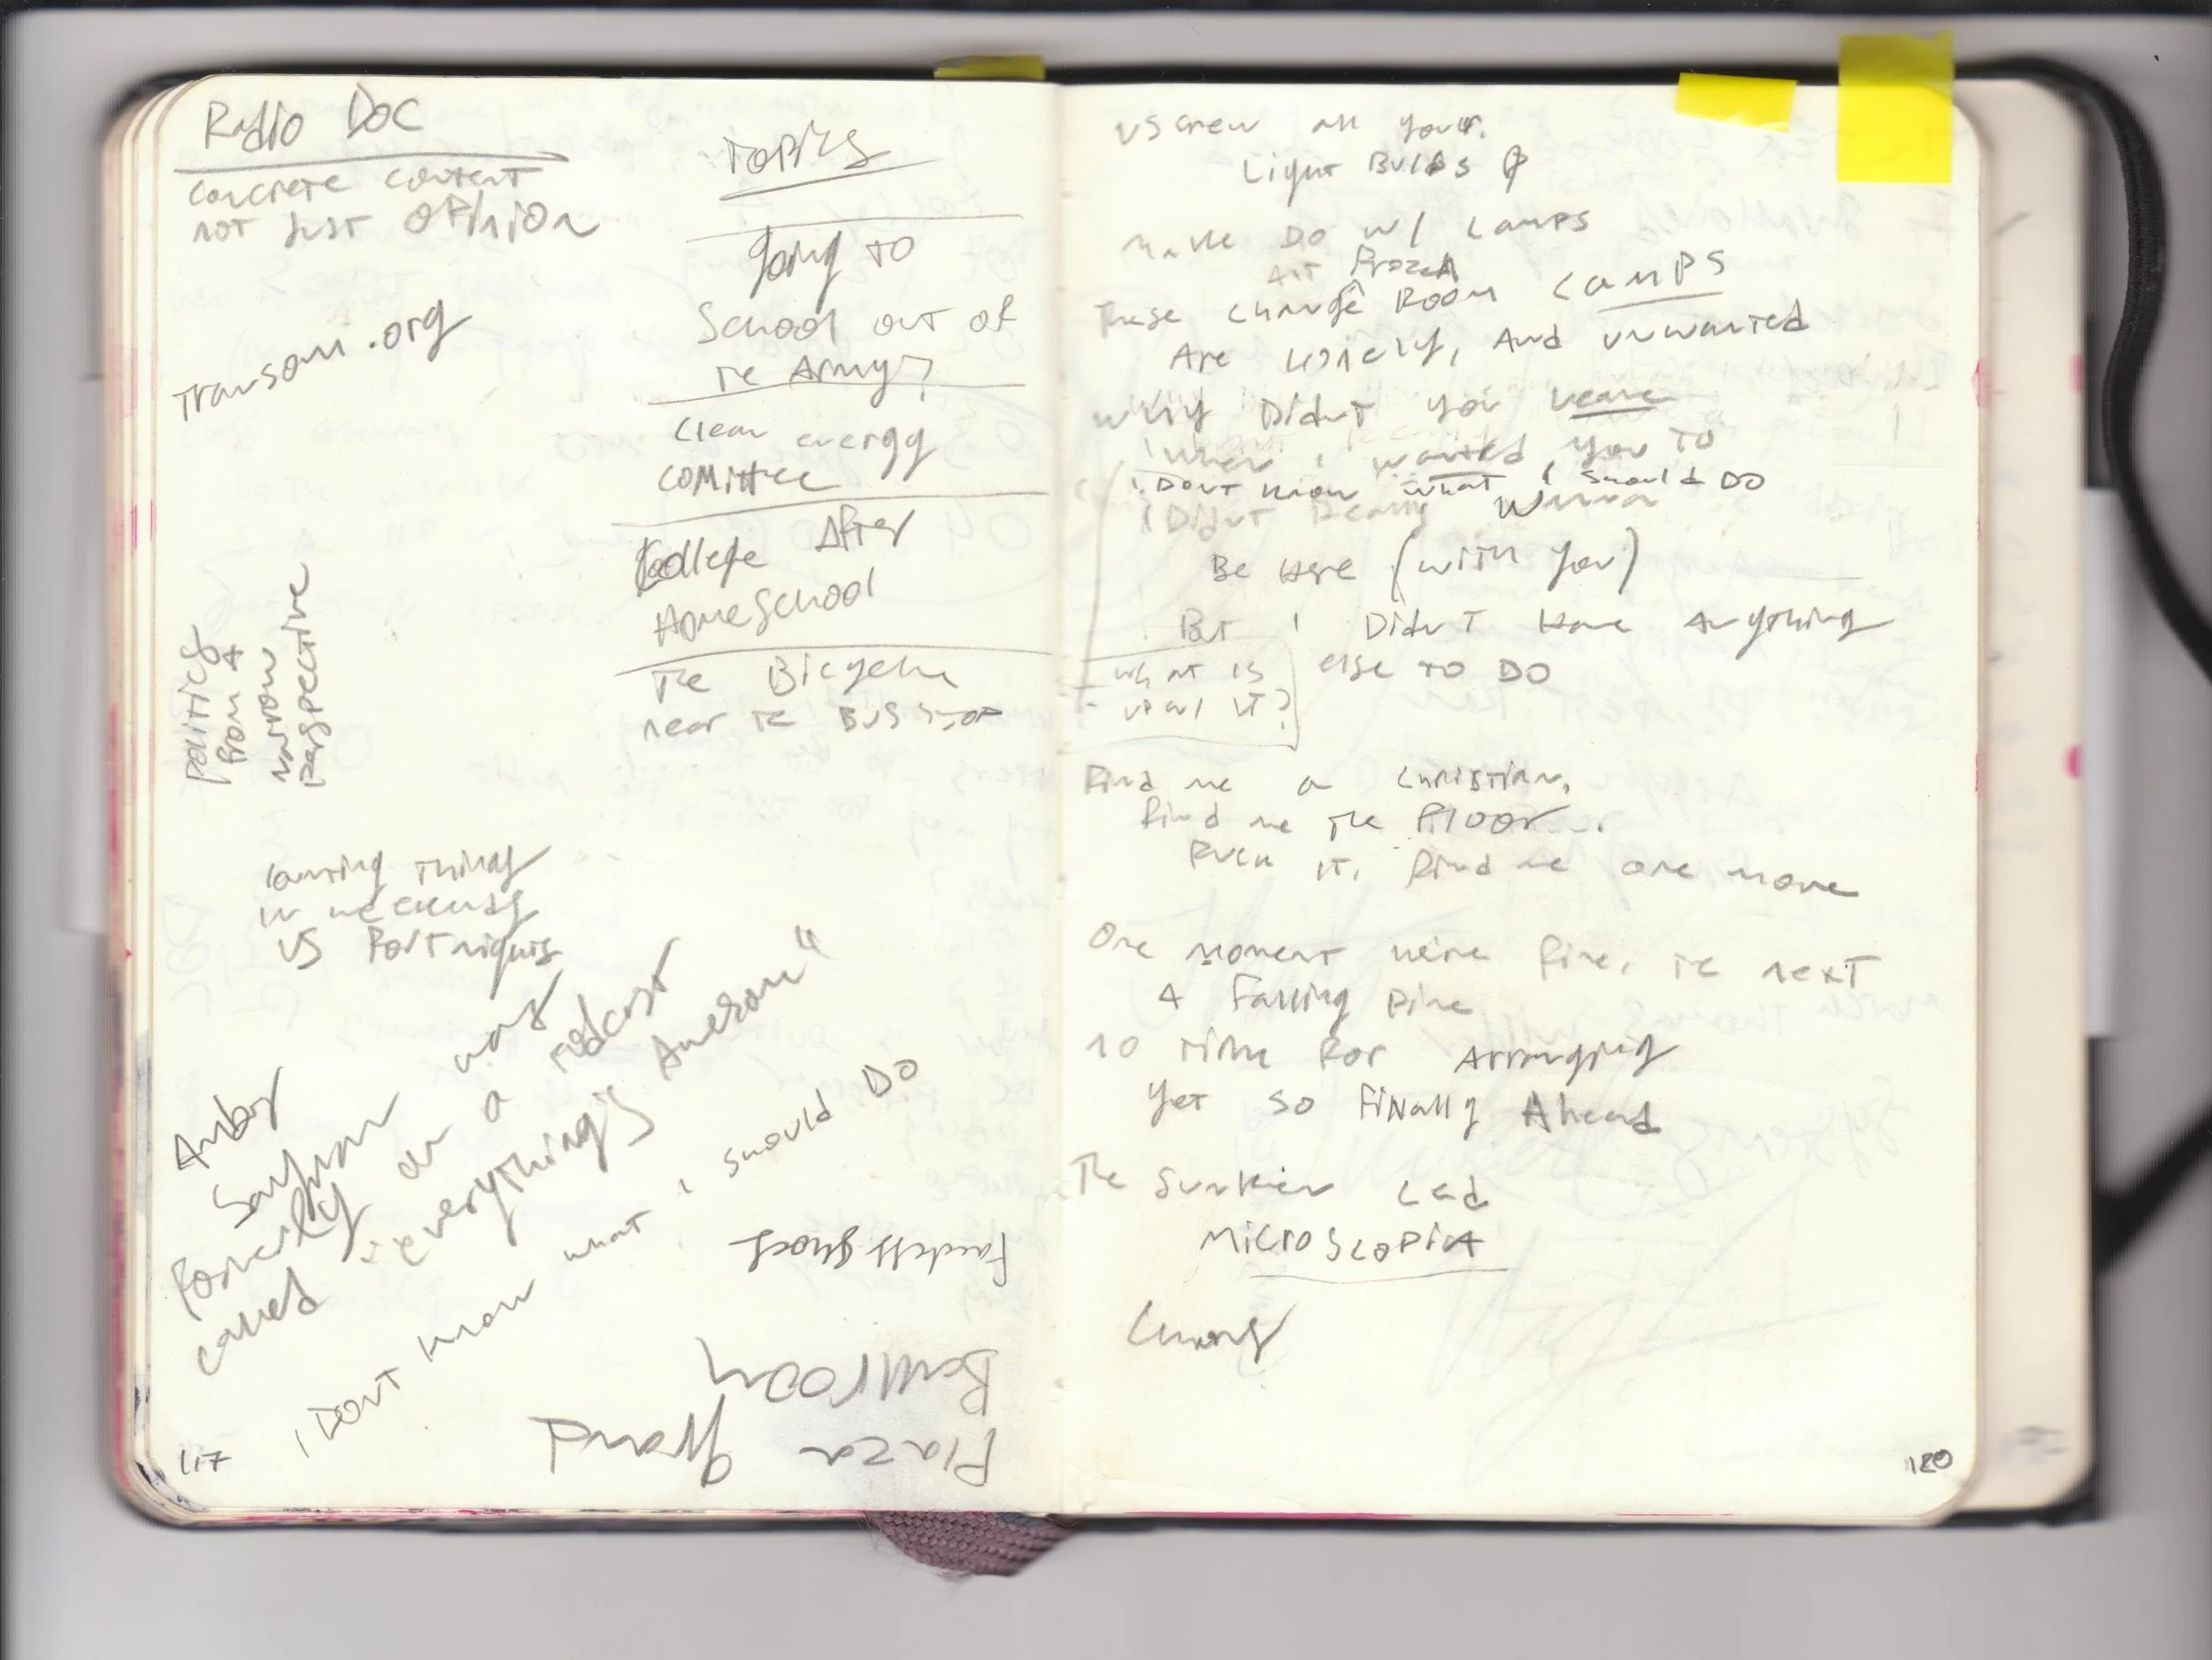 Radio Doc
concrete content
not just opinion
Transom.org
politics
from a
narrow
perspective
counting things
in weekends
vs fortnights
Amber
was
formerly on a podcast
called "everything's Awesome"
I Dont know what I should DO
Faceless ghost
Plaza
Grand
Ballroom
117
Topics
going to
School out of
Te Army?
Clean energy
comittee
College After
HomeSchool
Te Bicycle
near te Bus stop
all your
Light Bulbs
make Do w/ Lamps
Art Frozen
These change Room Lamps
Are lonely, And unwanted
why Didnt you leave
when I wanted you to
I Dont know what I should DO
I Didnt really wanna
Be Here (with you)
But I Didn't Have Anything
else to DO
what is
Find me a Christian,
find me the floor.
Fuck it, find me one more
One moment we're fine, te next
A Falling Pine
no time for Arranging
yet so finally Ahead
Te Led
Microscopia
120